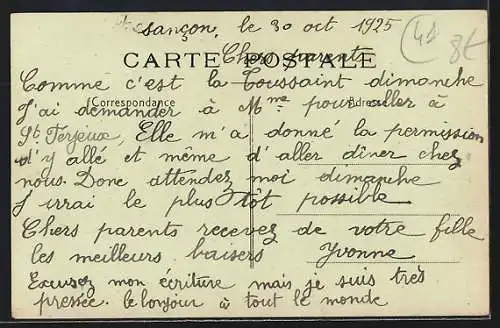 Besançon, le 30 oct 1925
48
8f
CARTE POSTALE
Chers parents
Comme c'est la Toussaint dimanche
J'ai demander à Mme pour aller à
Correspondance
Adresse
St Ferjeux, Elle m'a donné la permission
d'y allé et même d'aller dîner chez
nous. Donc attendez moi dimanche
J'irrai le plus tôt possible
Chers parents recevez de votre fille
les meilleurs baisers Yvonne
Excusez mon écriture mais je suis très
pressée. le bonjour à tout le monde